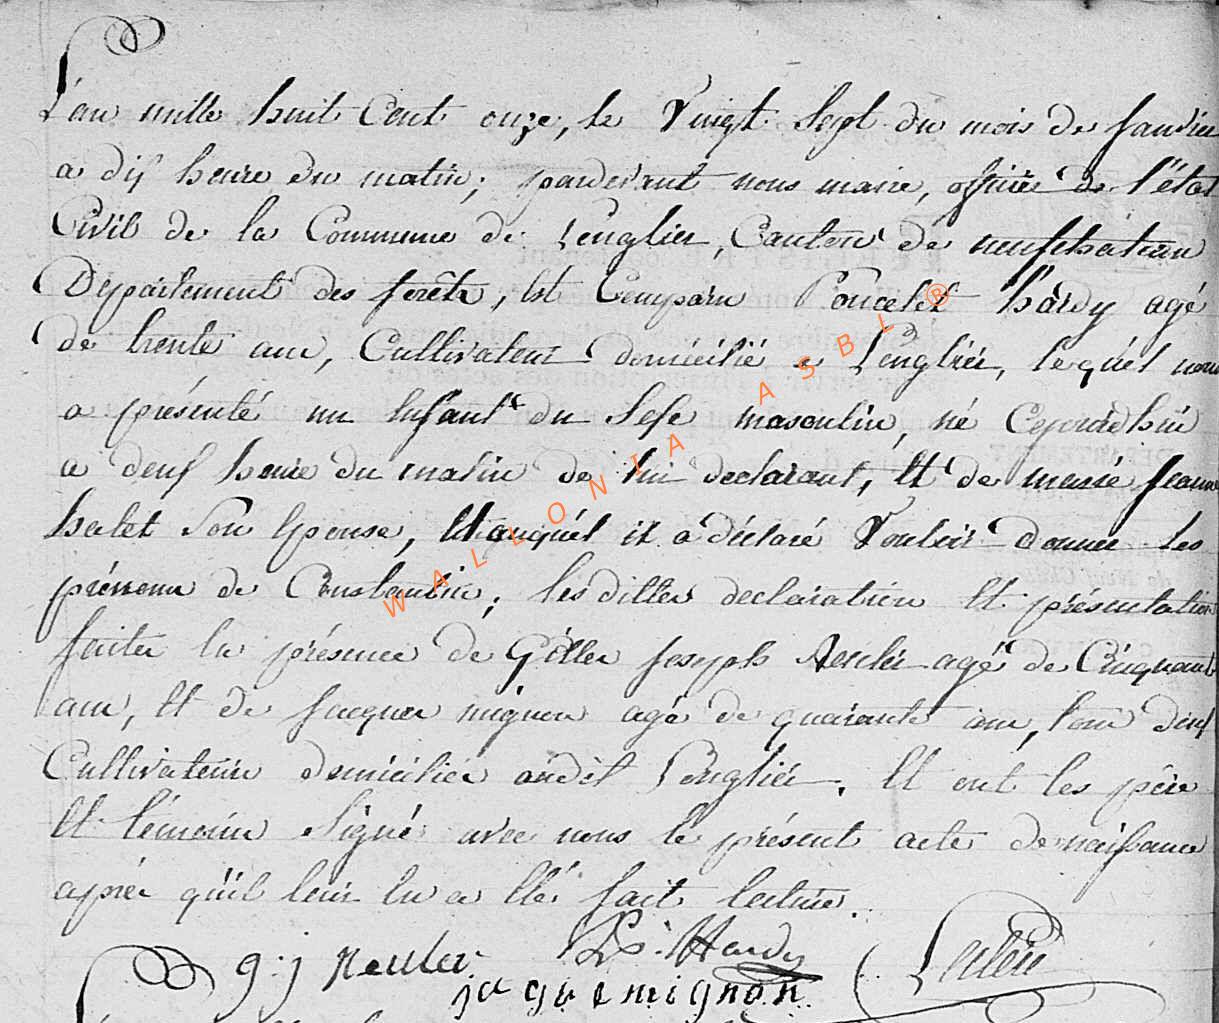 L'an mille huit Cent onze, le Vingt Sept du mois de Janvier
a dix heure du matin, pardevant nous maire, officier de l'état
Civil de la Commune de Longlier, Canton de neufchateau
Département des forêts, Est Comparu Poncelet hardy agé
de trente ans, Cultivateur domicilié a Longlier, lequel nous
a présenté un Enfant du Sexe masculin, né Cejourdhui
a deux heure du matin de lui déclarant, Et de marie jeanne
son Epouse, Et auquel il a déclaré Vouloir donner Les
prénom de Constantin, lesdittes declaration Et présentation
faites la présence de Gilles joseph agé de Cinquante
ans, Et de jacques mignon agé de quarante ans, tous deux
Cultivateurs domiciliés audit Longlier. Et ont les père
Et témoins Signé avec nous le présent acte de naissance
après qu'il leur en a Eté fait lecture.
g: j P: Hardy
jaque mignon
WALLONIA ASBL ®